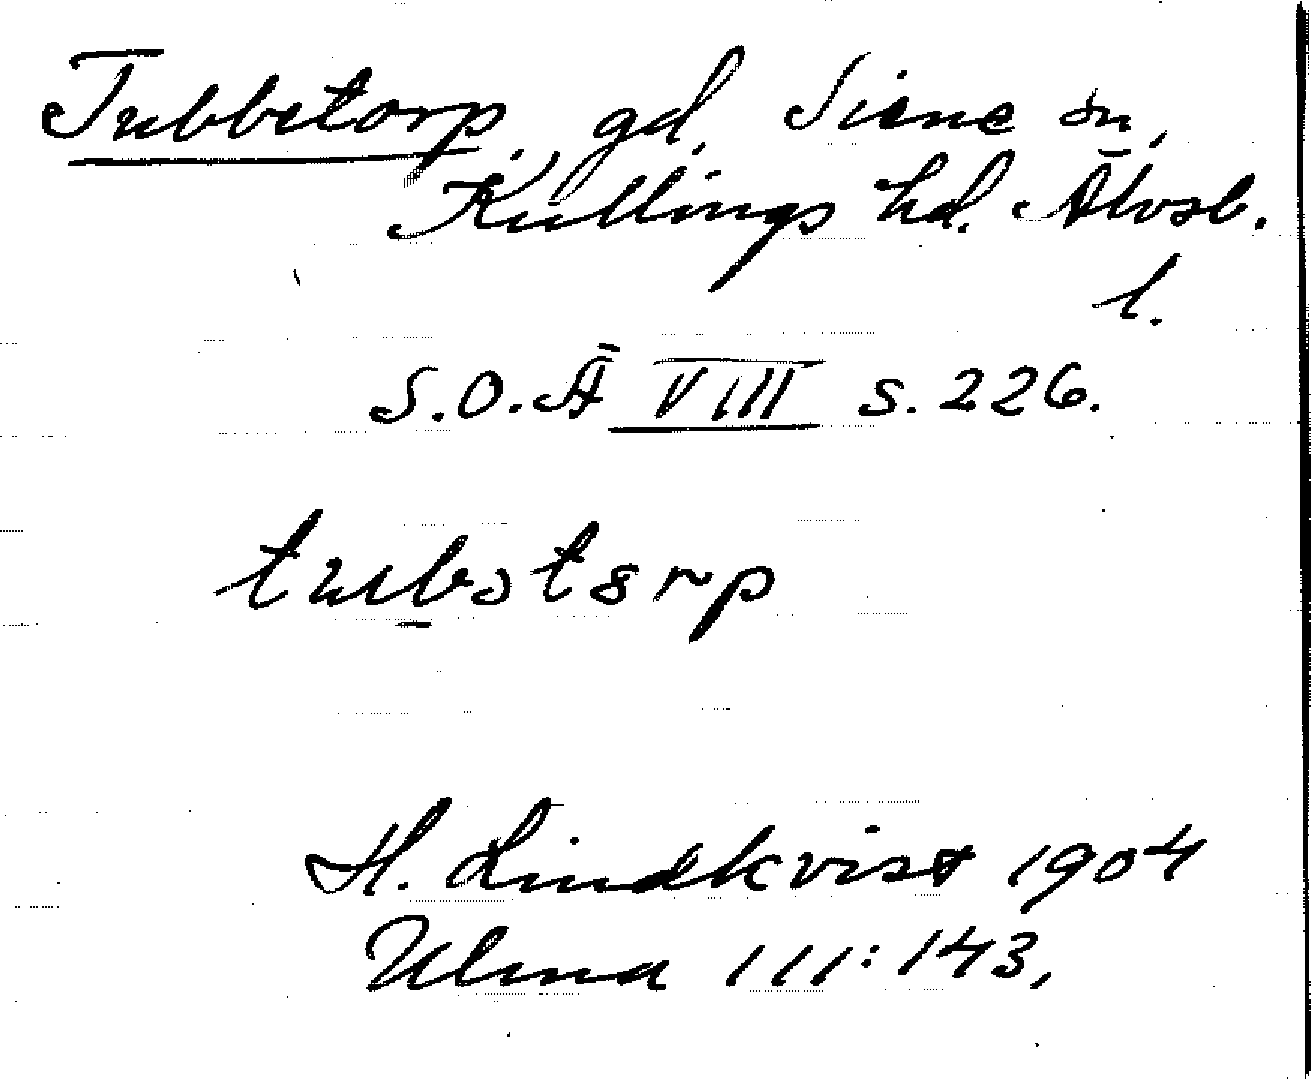 Tubbetorp, gd, Siene sn,
Kullings hd. Älvsb.
l.
S.O.Ä VIII s. 226.
tubɔtɜrp
H. Lindkvist 1904
Ulma 111:143,